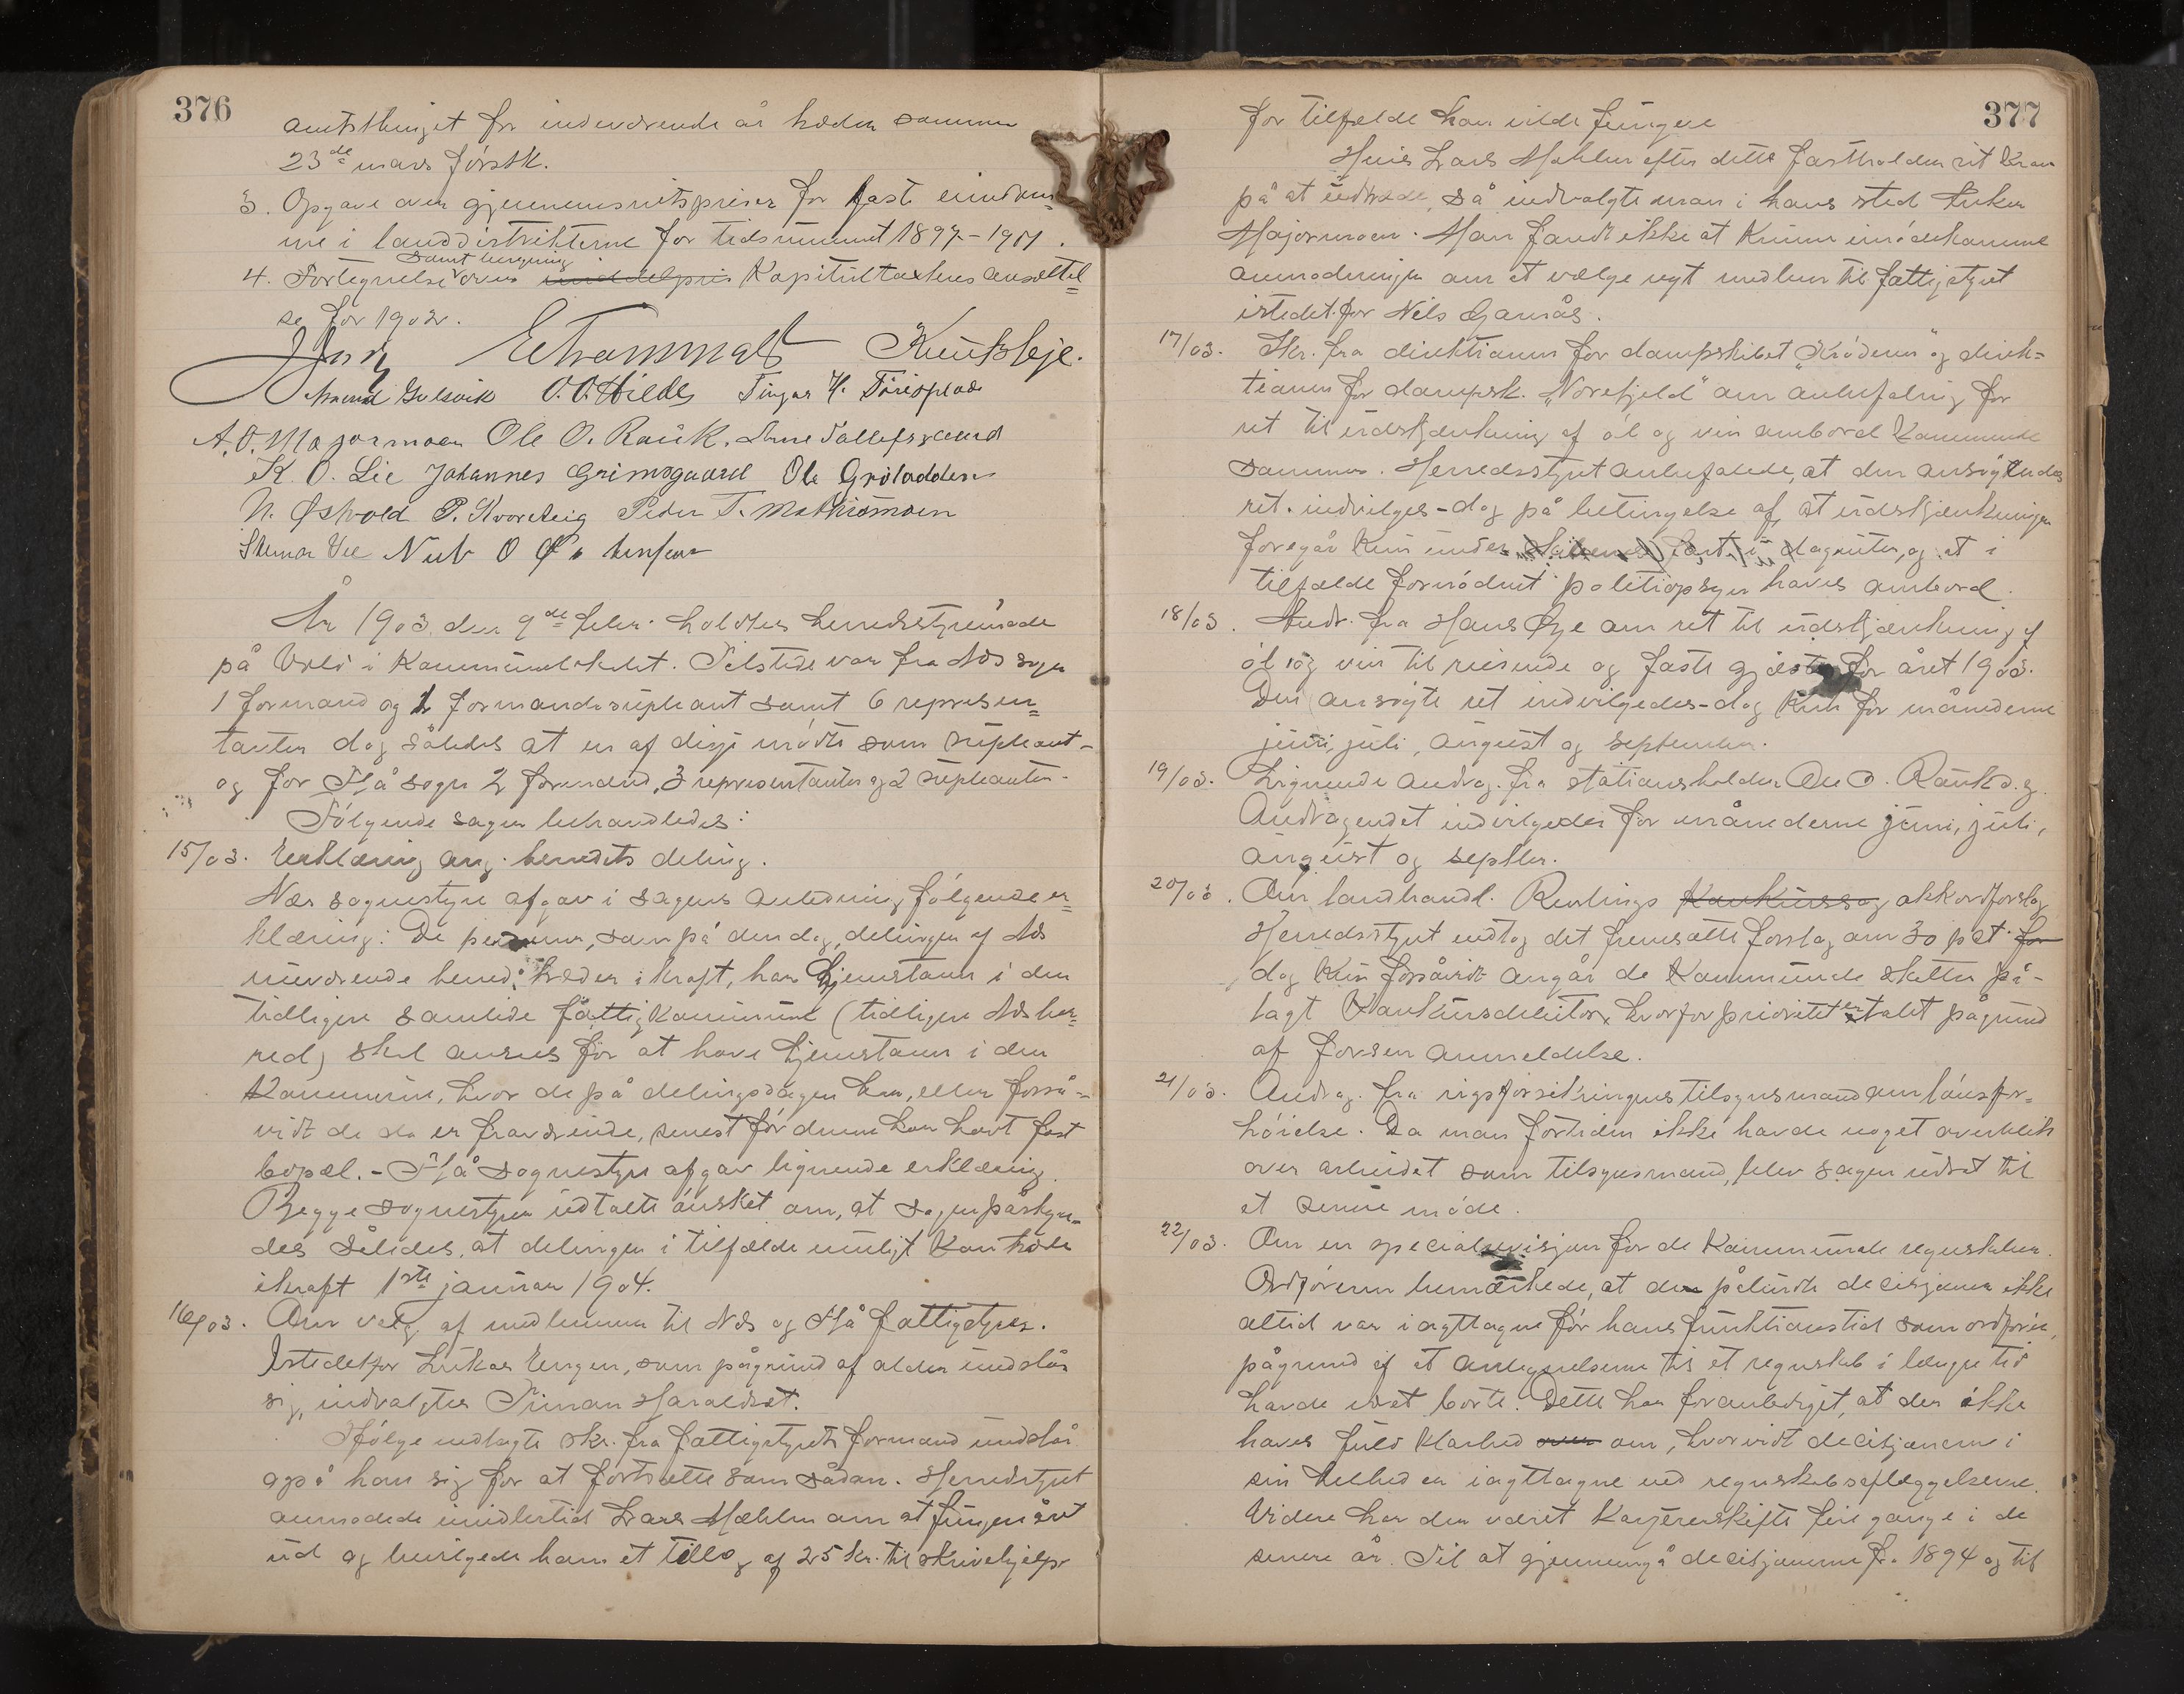 376
amtsthinget for indeværende år hæder sammen
23de mars førstk.
3. Opgave over gjennemsnitspriser for faste eiendom=
me i landdistrikterne for tidsrummet 1897-1901.
samt beregning
4. Fortegnelse over middelpris Kapitultaxtens ansættel=
se for 1902.
EThrammald Knut Sleje.
Gulsvik O. O. Hilde
A. O. Majormoen Ole O. Rauk. Arne Tollefsrud
K. O. Lie Johannes Grimsgaard Ole
N. Østvold P. Kvorsteig Peder T. Mathismoen
Steinar Vee
År 1903 den 9de febr. holdtes herredsstyremøde
på Vold i Kommunelokalet. Tilstede var fra Næs sogn
1 formand og 1 formandssupleant samt 6 represen=
tanter dog således at en af disse mødte som supleant-
og for Flå sogn 2 formænd, 3 representanter og 2 supleanter.
Følgende sager behandledes:
15/03. Erklæring ang. herredets deling.
Næs sognestyre afgav i sagens anledning følgende er=
klæring: De personer, som på den dag, delingen af Næs
nuværende herred træder i kraft, har hjemstavn i den
tidligere samlede fattigkommune (tidligere Næs her=
red) skal ansees for at have hjemstavn i den
Kommune, hvor de på delingsdagen bor, eller forså=
vidt de da er fraværende, senest før denne har havt fast
bopæl. - Flå sognestyre afgav lignende erklæring.
Begge sognestyrer udtalte ønsket om, at sagen påskyn=
des således, at delingen i tilfælde muligt kan træde
ikraft 1ste januar 1904.
16/03. Om valg af medlemmer til Næs og Flå fattigstyrer.
Istedetfor Lukas Engen, som pågrund af alder undslår
sig, indvalgtes Triman Haraldset.
Ifølge indlagte skr. fra fattigstyrets formand undslår
også han sig for at fortsætte som sådan. Herredsstyret
anmodede imidlertid Lars Mehlen om at fungere året
ud og bevilgede ham et tillæg af 25 kr. til skrivehjælp
377
for tilfælde han vilde fungere
Hvis Lars Mehlen efter dette fastholder sit Krav
på at udtræde, så indvalgte man i hans sted Anken
Majormoen. Man fandt ikke at Kunne imødekomme
anmodningen om at vælge nyt medlem til fattigstyret
istedetfor Nils Garnås.
17/03. Skr. fra direktionen for dampskibet "Krøderen" og direk=
tionen for dampsk. "Norefjeld" om anbefaling for
ret til udskjænkning af øl og vin ombord Kommende
sommer. Herredsstyret anbefalede, at den ansøgte
ret indvilges - dog på betingelse af, at udskjænkningen
foregår Kun under dagruter, og at i
tilfælde fornødent politiopsyn haves ombord.
18/03. Andr. fra Hans Øye om ret til udskjænkning af
øl og vin til reisende og faste gjæster for året 1903.
Den ansøgte ret indvilgedes - dog Kun for månederne
juni, juli, august og september.
19/03. Lignende andrag. fra stationsholder Ole O. Rauk d. y.
Andragendet indvilgedes for månederne juni, juli,
august og septbr.
20/03. Om landhandl. Konkurssag akkordforslag
Herredsstyret vedtog det fremsatte forslag om 30 pct for
dog Kun forsåvidt angår de Kommunale skatter på-
lagt Konkursdebitor, hvorfor prioriteten tabt pågrund
af forsen anmeldelse.
21/03. Andrag. fra rigsforsikringens tilsynsmand om lønsfor=
høielse. Da man fortiden ikke havde noget overblik
over arbeidet som tilsynsmand, blev sagen udsat til
et senere møde.
22/03. Om en specialrevisjon for de Kommunale regnskaber.
Ordføreren bemærkede, at den påbudte decisjoner ikke
altid var iagttagne før hans funktionstid som ordfører,
pågrund af at antegnelserne til et regnskab i længere tid
havde været borte. Dette har foranlediget, at der ikke
haves fuld klarhed over om, hvorvidt decisjonerne i
sin helhed er iagttagne ved regnskabsaflæggelserne.
Videre har der været Kassererskifte fire gange i de
senere år. Til at gjennemgå decisjonerne fra 1894 og til